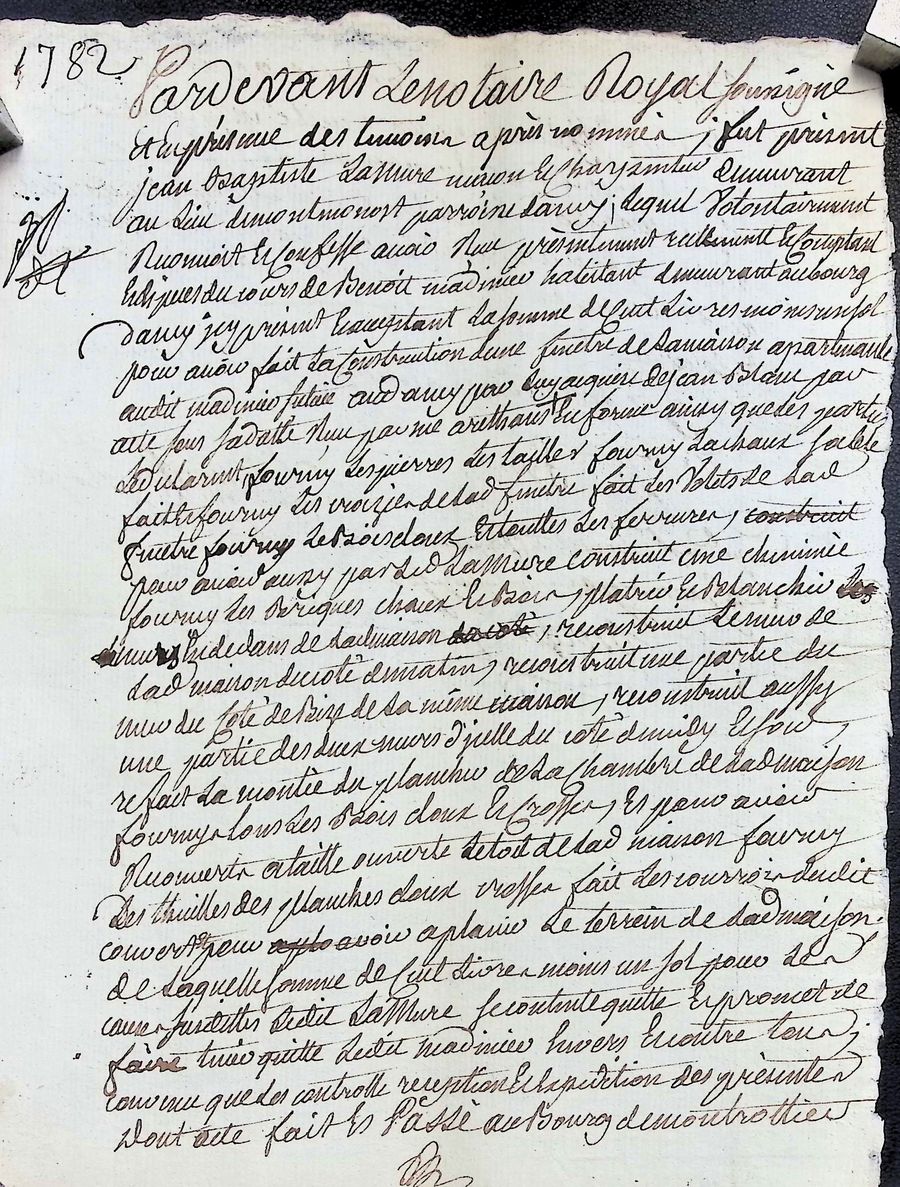 1782
Pardevant Le notaire Royal soussigné
et En présence des temoins après nommés, fut présent
jean Baptiste Lamure maçon et Charpentier demeurant
au Lieu de montmonost parroisse dancy, lequel Volontairement
Reconnoit et Confesse avoir Reçu présentement réellement et Comptant
En Espèces du cours de Benoit madinier habitant demeurant au bourg
dancy icy présent Et acceptant La somme de Cent Livres moins un sol
pour avoir fait La Construction d'une fenêtre de La maison apartenante
audit madinier située aud ancy par Luy acquise de jean Blanc par
acte sous sa datte Reçu par me arthaus En forme ainsy que Les parties
Le déclarent, fourny Les pierres Les tailler fourny La chaux sable
fait et fourny Les croizées de Lad fenêtre fait Les Volets de Lad
fenêtre fourny Le Bois cloux Et touttes Les ferrures, construit
pour avoir aussy par Led Lamure Construit une cheminée
fourny Les Briques chaux Et Bois, Platrée Et Blanchir Les
murs En dedans de Lad maison du coté, reconstruit Le mur de
Lad maison du coté de matin, reconstruit une partie du
mur du Coté de Bize de La même maison, reconstruit aussy
une partie des deux murs d'icelle du coté de midy Et soir,
refait La montée du plancher de La Chambre de Lad maison
fourny tous Les Bois cloux Et Crosses, Et pour avoir
Recouvert a taille ouverte Le toit de Lad maison fourny
Des thuilles des planches cloux crosses fait Les courrois dudit
couvert Et pour avoir aplanir Le terrein de Lad maison.
de Laquelle somme de Cent Livres moins un sol pour Les
causes susdittes Ledit Lamure se contente quitte Et promet de
faire tenir quitte Ledit madinier Envers Et contre tous,
convenu que Les controlle reception Et Expédition des présentes
Dont acte fait Et Passé au Bourg de montrottier